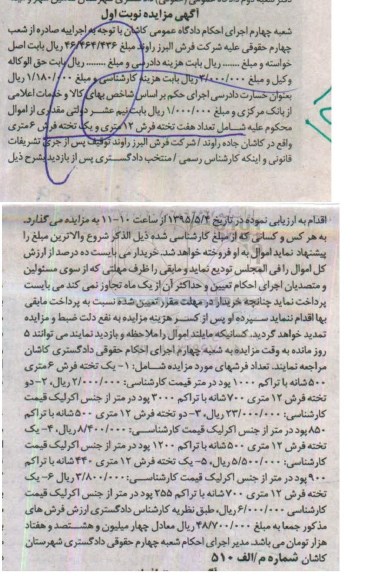 آگهی مزایده نوبت اول
شعبه چهارم اجرای احکام دادگاه عمومی کاشان با توجه به اجراییه صادره از شعب
چهارم حقوقی علیه شرکت فرش البرز راوند مبلغ ۴۶/۴۶۴/۴۳۶ ریال بابت اصل
خواسته و مبلغ ....... ریال بابت هزینه دادرسی و مبلغ ........ ریال بابت حق الوکاله
وکیل و مبلغ ۳/۰۰۰/۰۰۰ ریال بابت هزینه کارشناسی و مبلغ ۱/۱۸۰/۰۰۰ ریال
بعنوان خسارت دادرسی اجرای حکم بر اساس شاخص بهای کالا و خدمات اعلامی
از بانک مرکزی و مبلغ ۱/۰۰۰/۰۰۰ ریال بابت نیم عشر دولتی مقداری از اموال
محکوم علیه شامل تعداد هفت تخته فرش ۱۲ متری و یک تخته فرش ۶ متری
واقع در کاشان جاده راوند / شرکت فرش البرز راوند توقیف پس از جری تشریفات
قانونی و اینکه کارشناس رسمی / منتخب دادگستری پس از بازدید بشرح ذیل
اقدام به ارزیابی نموده در تاریخ ۱۳۹۵/۵/۴ از ساعت ۱۰-۱۱ به مزایده می گذارد.
به هر کس و کسانی که از مبلغ کارشناسی شده ذیل الذکر شروع والاترین مبلغ را
پیشنهاد نماید اموال به او فروخته خواهد شد. خریدار می بایست ده درصد از ارزش
کل اموال را فی المجلس تودیع نماید و مابقی را ظرف مهلتی که از سوی مسئولین
و متصدیان اجرای احکام تعیین و حداکثر آن از یک ماه تجاوز نمی کند می بایست
پرداخت نماید چنانچه خریدار در مهلت مقرر تعیین شده نسبت به پرداخت مابقی
بها اقدام ننماید سپرده او پس از کسر هزینه مزایده به نفع دولت ضبط و مزایده
تمدید خواهد گردید. کسانیکه مایلند اموال را ملاحظه و بازدید نمایند می توانند ۵
روز مانده به وقت مزایده به شعبه چهارم اجرای احکام حقوقی دادگستری کاشان
مراجعه نمایند. تعداد فرشهای مورد مزایده شامل: ۱- یک تخته فرش ۶ متری
۵۰۰ شانه با تراکم ۱۰۰۰ پود در متر قیمت کارشناسی: ۲/۰۰۰/۰۰۰ ریال، ۲- دو
تخته فرش ۱۲ متری ۷۰۰ شانه با تراکم ۳۰۰۰ پود در متر از جنس اکرلیک قیمت
کارشناسی: ۲۳/۰۰۰/۰۰۰ ریال، ۳- دو تخته فرش ۱۲ متری ۵۰۰ شانه با تراکم
۸۵۰ پود در متر از جنس اکرلیک قیمت کارشناسی: ۸/۴۰۰/۰۰۰ ریال، ۴- یک
تخته فرش ۱۲ متری ۵۰۰ شانه با تراکم ۱۲۰۰ پود در متر از جنس اکرلیک قیمت
کارشناسی: ۵/۵۰۰/۰۰۰ ریال، ۵- یک تخته فرش ۱۲ متری ۴۴۰ شانه با تراکم
۹۰۰ پود در متر از جنس اکرلیک قیمت کارشناسی: ۳/۸۰۰/۰۰۰ ریال ۶- یک
تخته فرش ۱۲ متری ۷۰۰ شانه با تراکم ۲۵۵ پود در متر از جنس اکرلیک قیمت
کارشناسی ۶/۰۰۰/۰۰۰ ریال، طبق نظریه کارشناس دادگستری ارزش فرش های
مذکور جمعا به مبلغ ۴۸/۷۰۰/۰۰۰ ریال معادل چهار میلیون و هشتصد و هفتاد
هزار تومان می باشد. مدیر اجرای احکام شعبه چهارم حقوقی دادگستری شهرستان
کاشان شماره م/الف ۵۱۰